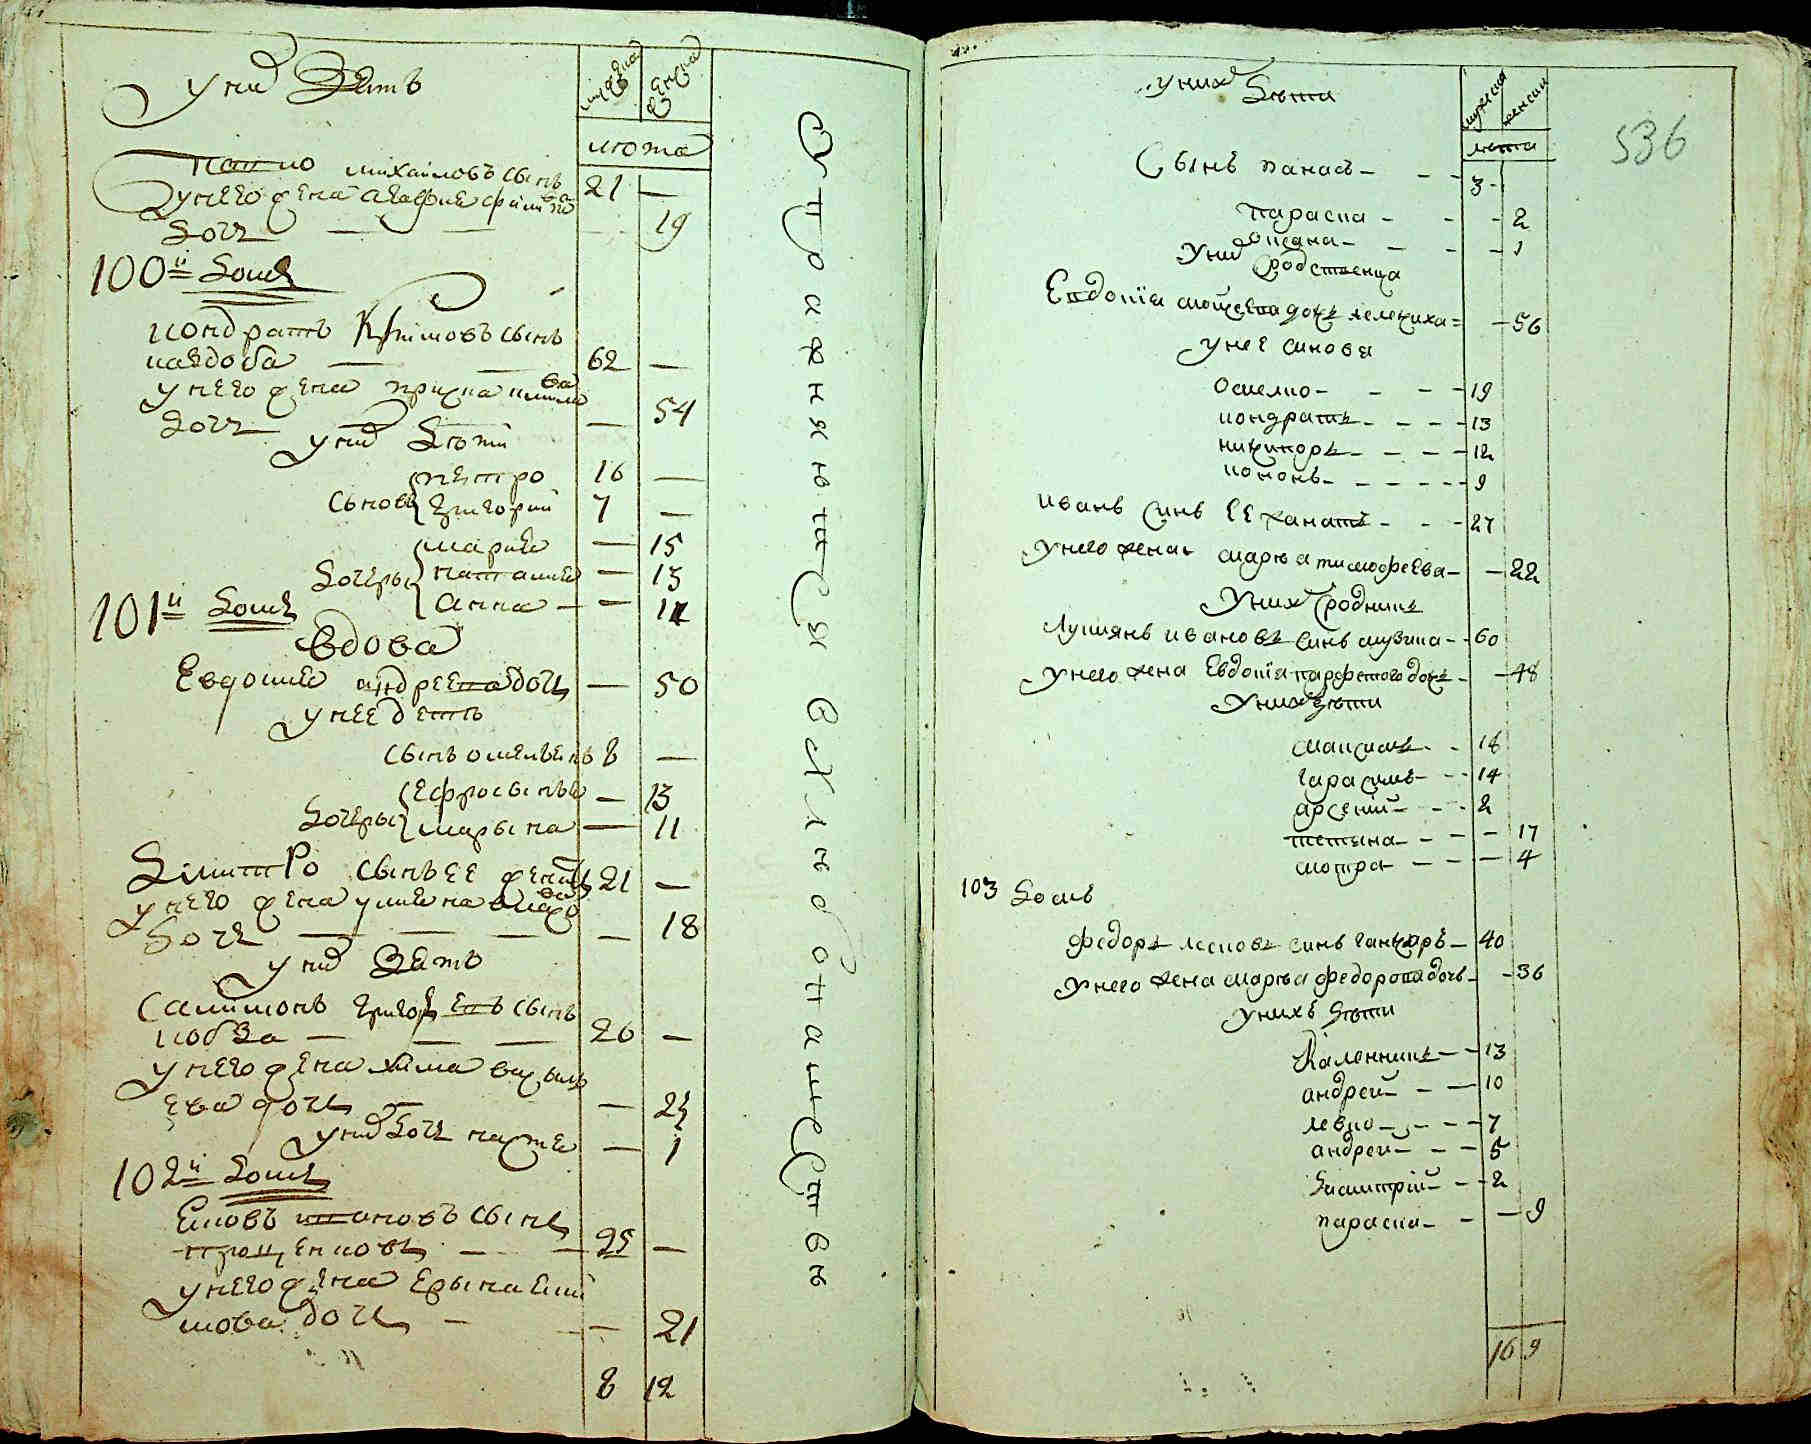 у них Зять
мужеска
женска
лѣта
Павло михаиловъ сынъ 21 —
у него жена агафия ефимова
дочь — — — 19
100й Домъ
кондратъ климовъ сынъ
каздоба — — 62 —
у него жена
дочь — — 54
у них дѣти
сыновя
петро 16 —
григорий 7 —
дочеры
мария — 15
наталия — 13
анна — 11
101й Домъ
вдова
Евдокия андреева дочь — 50
у нее дети
сынъ омелянъ 8 —
дочеры
ефросыния — 13
марына — 11
Дмитро сынъ ее женатъ 21 —
у него жена улияна
дочь — — — — 18
у них Зять
самийонъ григориевъ сынъ
кобза — — — 20 —
у него жена хима
ева дочь — — 24
у них дочь настя — 1
102й Домъ
Яковъ ивановъ сынъ
троценковъ — — 25 —
у него жена ерына еки
мова дочь — — 21
8 12
у них дѣти
мужеска
женска
лѣта
Сынъ панасъ — — — 3 —
параска — — — 2
оксана — — — 1
у них сродственица
Евдокия мойсеева дочь мелениха = — 56
у нее синовя
омелко — — — 19
кондратъ — — — — 13
никифоръ — — — — 12
кононъ — — — — — 9
иванъ синъ ее жанатъ — — — 27
у него жена марья тимофеева — — 22
у них сродникъ
Лукиянъ ивановъ синъ музика — — 60
у него жена Евдокия парфенова дочь — — 48
у них дѣти
максимъ — — 18
гарасимъ — — 14
арсений — — — 2
тетяна — — — — 17
мотра — — — 4
103 Домъ
Федоръ лесковъ синъ ганжаръ — 40
у него жена марья федорова дочь — — 36
у нихъ дѣти
Каленникъ — — 13
андрей — — 10
левко — — — — 7
андрей — — — 5
Дмитрий — — 2
параска — — — 9
16 9
536